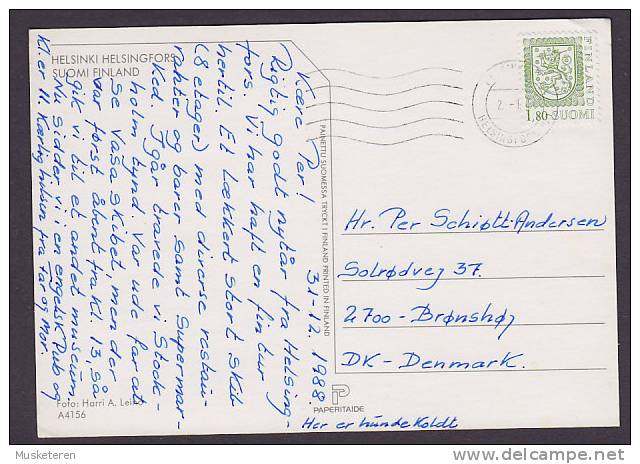 HELSINKI HELSINGFORS
SUOMI FINLAND
31-12. 1988.
Kære Per!
Rigtig godt nytår fra Helsing-
fors. Vi har haft en fin tur
hertil. Et Lækkert stort skib
(8 etager) med diverse restau-
ranter og barer samt Supermar-
ked. Igår travede vi Stock-
holm tynd. Var ude for at
se Vasa skibet, men der
var først åbent fra Kl. 13, så
gik vi til et andet museum.
Nu sidder vi i en engelsk Pub og
Kl. er 11. Kærlig hilsen fra Far og mor.
Foto: Harri A.
A4156
PAINETTU SUOMESSA TRYCKT I FINLAND PRINTED IN FINLAND
PAPERITAIDE
FINLAND
1,80 SUOMI
Hr. Per Schiøtt-Andersen
Solrødvej 37.
2700-Brønshøj
DK-Denmark.
Her er hundekoldt
Musketeren
delcampe.net